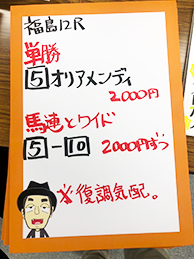 福島12R
単勝
5 オリアメンディ
2000円
馬連とワイド
5-10 2000円ずつ
※復調気配。